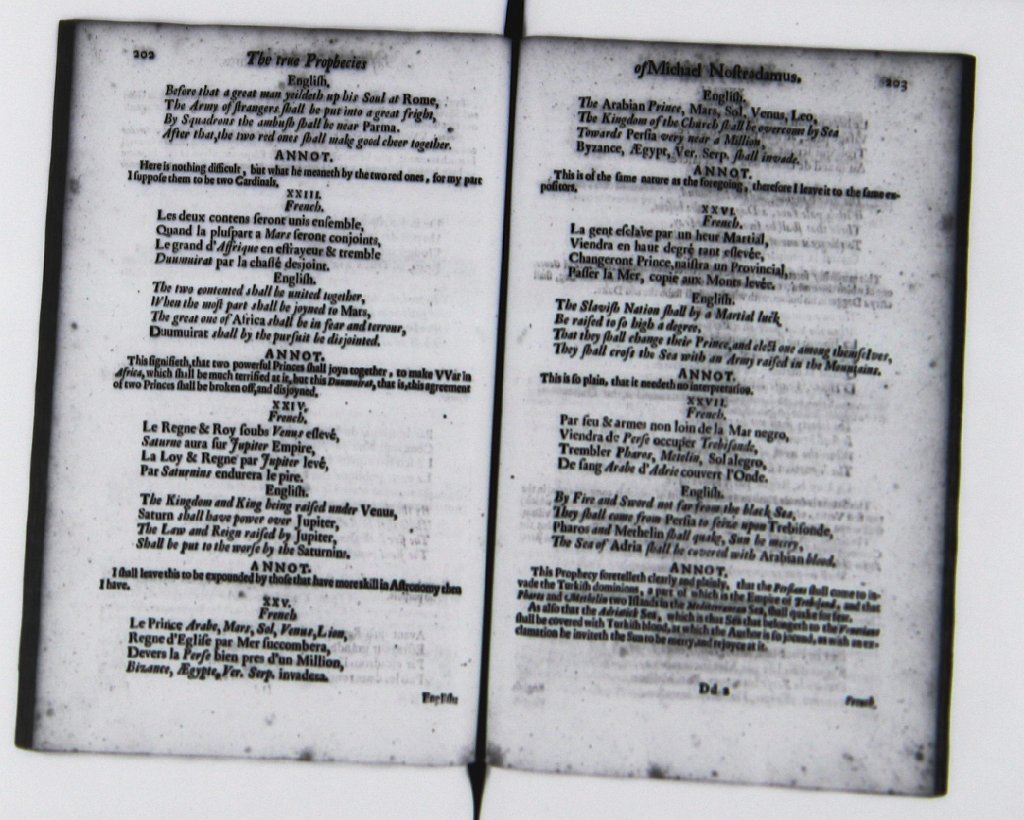 202
The true Prophecies
Engliſh.
Before that a great man yeildeth up his Soul at Rome,
The Army of ſtrangers ſhall be put into a great fright,
By Squadrons the ambuſh ſhall be near Parma.
After that, the two red ones ſhall make good cheer together.
ANNOT.
Here is nothing difficult, but what he meaneth by the two red ones, for my part
I ſuppoſe them to be two Cardinals.
XXIII.
French.
Les deux contens ſeront unis enſemble,
Quand la pluſpart a Mars ſeront conjoints,
Le grand d'Affrique en effrayeur & tremble
Duumuirat par la chaſſé desjoint.
Engliſh.
The two contented ſhall be united together,
When the moſt part ſhall be joyned to Mars,
The great one of Africa ſhall be in fear and terrour,
Duumuirat ſhall by the purſuit be disjointed.
ANNOT.
This ſignifieth, that two powerful Princes ſhall joyn together, to make VVar in
Africa, which ſhall be much terrified at it, but this Duumuirat, that is, this agreement
of two Princes ſhall be broken off, and disjoyned.
XXIV.
French.
Le Regne & Roy ſoubs Venus eſlevé,
Saturne aura ſur Jupiter Empire,
La Loy & Regne par Jupiter levé,
Par Saturnins endurera le pire.
Engliſh.
The Kingdom and King being raiſed under Venus,
Saturn ſhall have power over Jupiter,
The Law and Reign raiſed by Jupiter,
Shall be put to the worſe by the Saturnins.
ANNOT.
I ſhall leave this to be expounded by thoſe that have more skill in Aſtronomy then
I have.
XXV.
French
Le Prince Arabe, Mars, Sol, Venus, Lion,
Regne d'Egliſe par Mer ſuccombera,
Devers la Perſe bien pres d'un Million,
Bizance, Ægypte, Ver. Serp. invadera.
Engliſh
of Michael Noſtradamus.
203
Engliſh.
The Arabian Prince, Mars, Sol, Venus, Leo,
The Kingdom of the Church ſhall be overcome by Sea
Towards Perſia very near a Million,
Byzance, Ægypt, Ver. Serp. ſhall invade.
ANNOT.
This is of the ſame nature as the foregoing, therefore I leave it to the ſame ex-
poſitors.
XXVI.
French.
La gent eſclave par un heur Martial,
Viendra en haut degré tant eſlevée,
Changeront Prince, naiſtra un Provincial,
Paſſer la Mer, copie aux Monts levée.
Engliſh.
The Slaviſh Nation ſhall by a Martial luck
Be raiſed to ſo high a degree,
That they ſhall change their Prince, and elect one among themſelves,
They ſhall croſs the Sea with an Army raiſed in the Mountains.
ANNOT.
This is ſo plain, that it needeth no interpretation.
XXVII.
French.
Par feu & armes non loin de la Mar negro,
Viendra de Perſe occuper Trebiſonde,
Trembler Pharos, Metelin, Sol alegro,
De ſang Arabe d'Adrie couvert l'Onde.
Engliſh.
By Fire and Sword not far from the black Sea,
They ſhall come from Perſia to ſeize upon Trebiſonde,
Pharos and Methelin ſhall quake, Sun be merry,
The Sea of Adria ſhall be covered with Arabian blood.
ANNOT.
This Prophecy foretelleth clearly and plainly, that the Perſians ſhall come to in-
vade the Turkiſh dominions, a part of which is the Empire of Trebiſond, and that
Pharos and Methelin two Iſlands in the Mediterranean Sea, ſhall quake for fear.
As alſo that the Adriatick Sea, which is that Sea that belongeth to the Venetians
ſhall be covered with Turkiſh blood, at which the Author is ſo joyned, as with an ex-
clamation he inviteth the Sun to be merry and rejoyce at it.
Dd 2
French.